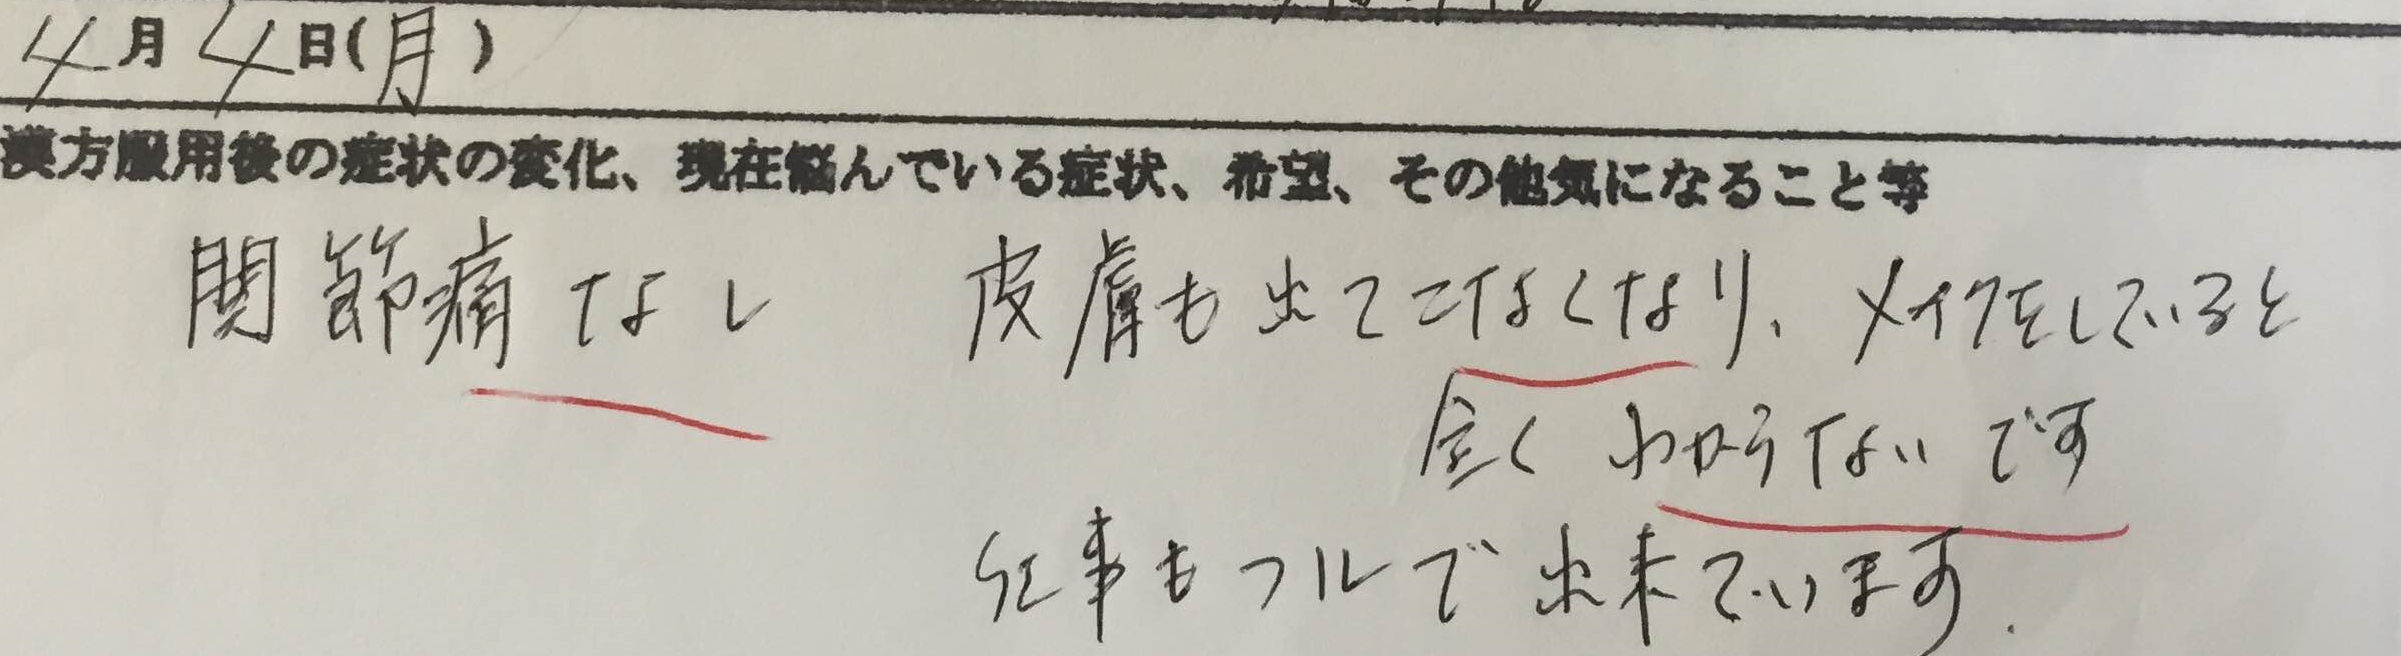 4月4日(月)
漢方服用後の症状の変化、現在悩んでいる症状、希望、その他気になること等
関節痛なし 皮膚も出てこなくなり、メイクをしていると
全くわからないです
仕事もフルで出来ています.